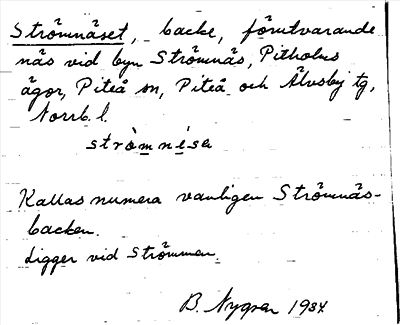 Strömnäset, backe, förutvarande
näs vid byn Strömnäs, Pitholms
ägor, Piteå sn, Piteå och Älvsby tg,
Norrb. l.
stròmnése
Kallas numera vanligen Strömnäs-
backen.
Ligger vid Strömmen.
B. Nygren 1934